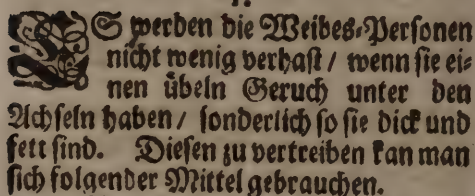 ES werden die Weibes-Personen
nicht wenig verhast / wenn sie ei-
nen übeln Geruch unter den
Achseln haben / sonderlich so sie dick und
fett sind. Diesen zu vertreiben kan man
sich folgender Mittel gebrauchen.